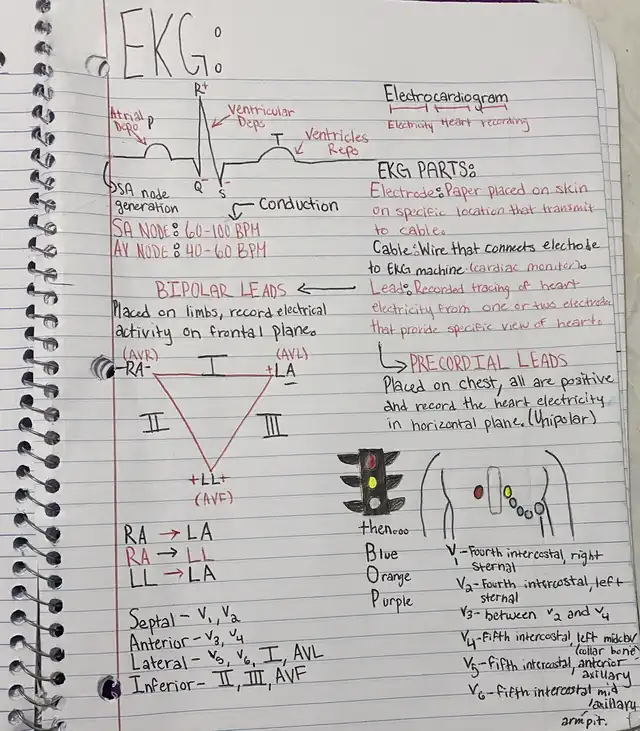 EKG:
R+
Atrial
Depo
P
Ventricular
Depo
T
Ventricles
Repo
Q-
S-
SA node
generation
Conduction
SA NODE: 60-100 BPM
AV NODE: 40-60 BPM
Electrocardiogram
Electricity Heart recording
EKG PARTS:
Electrode: Paper placed on skin
on specific location that transmit
to cable.
Cable: Wire that connects electrode
to EKG machine (cardiac monitor).
Lead: Recorded tracing of heart
electricity from one or two electrode
that provide specific view of heart.
BIPOLAR LEADS
Placed on limbs, record electrical
activity on frontal plane.
(AVR) I (AVL)
-RA- +LA
-
II III
+LL+
(AVF)
RA → LA
RA → LL
LL → LA
Septal - V1, V2
Anterior - V3, V4
Lateral - V5, V6, I, AVL
Inferior - II, III, AVF
PRECORDIAL LEADS
Placed on chest, all are positive
and record the heart electricity
in horizontal plane. (Unipolar)
then...
Blue
Orange
Purple
V1 - Fourth intercostal, right
sternal
V2 - Fourth intercostal, left
sternal
V3 - between V2 and V4
V4 - fifth intercostal, left
(collar bone)
V5 - fifth intercostal, anterior
axillary
V6 - fifth intercostal mid
axillary
armpit.